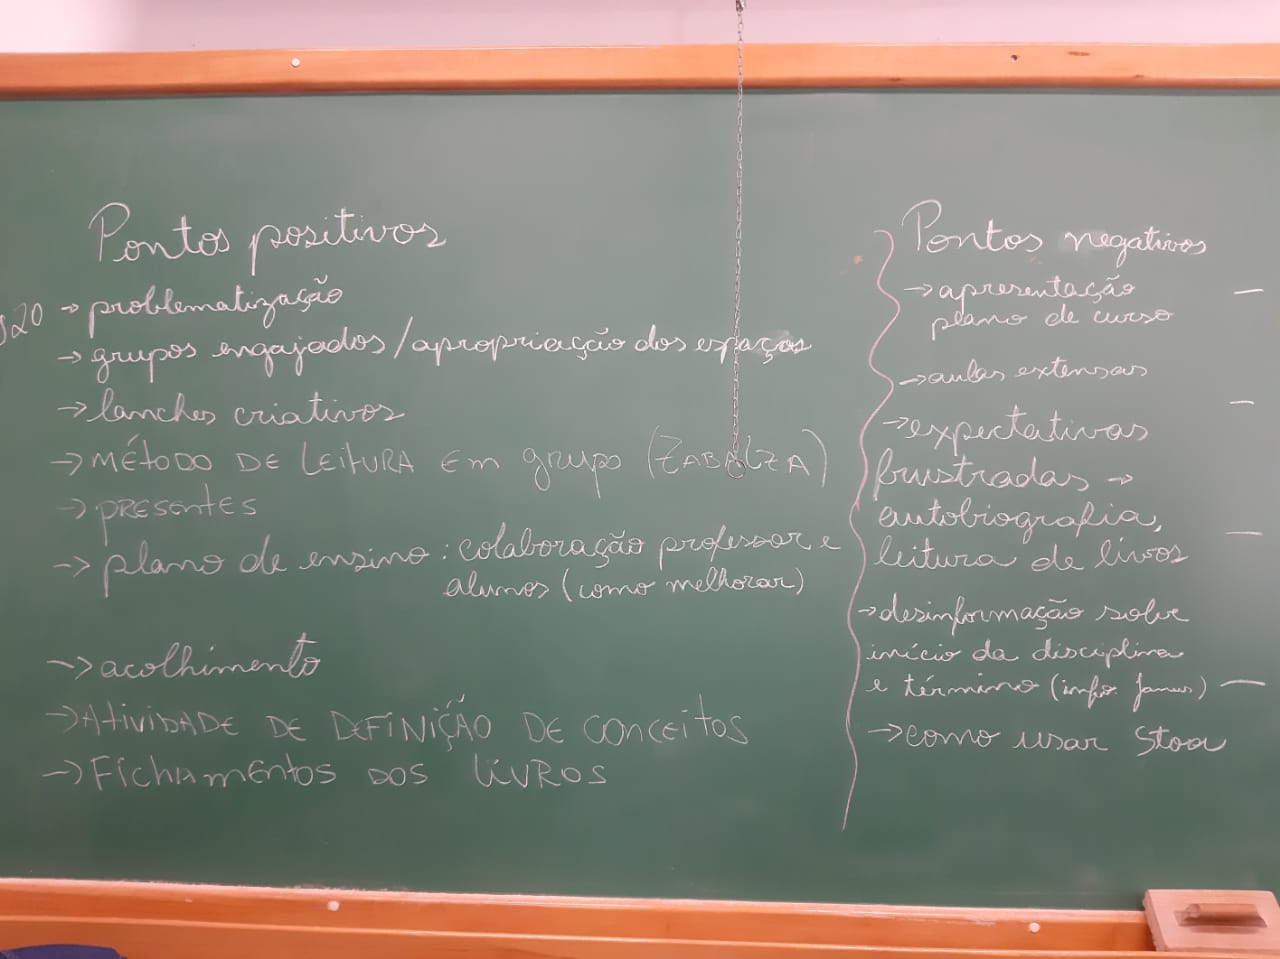 Pontos positivos
→ problematização
→ grupos engajados / apropriação dos espaços
→ lanches criativos
→ MÉTODO DE LEITURA Em grupo (ZABALZA)
→ PRESENTES
→ plano de ensino : colaboração professor e
alunos (como melhorar)
→ acolhimento
→ ATIVIDADE DE DEFINIÇÃO DE CONCEITOS
→ FICHAMENTOS DOS LIVROS
Pontos negativos
→ apresentação
plano de curso
→ aulas extensas
→ expectativas
frustradas →
autobiografia,
leitura de livros
→ desinformação sobre
início da disciplina
e término (info Janus)
→ como usar Stoa